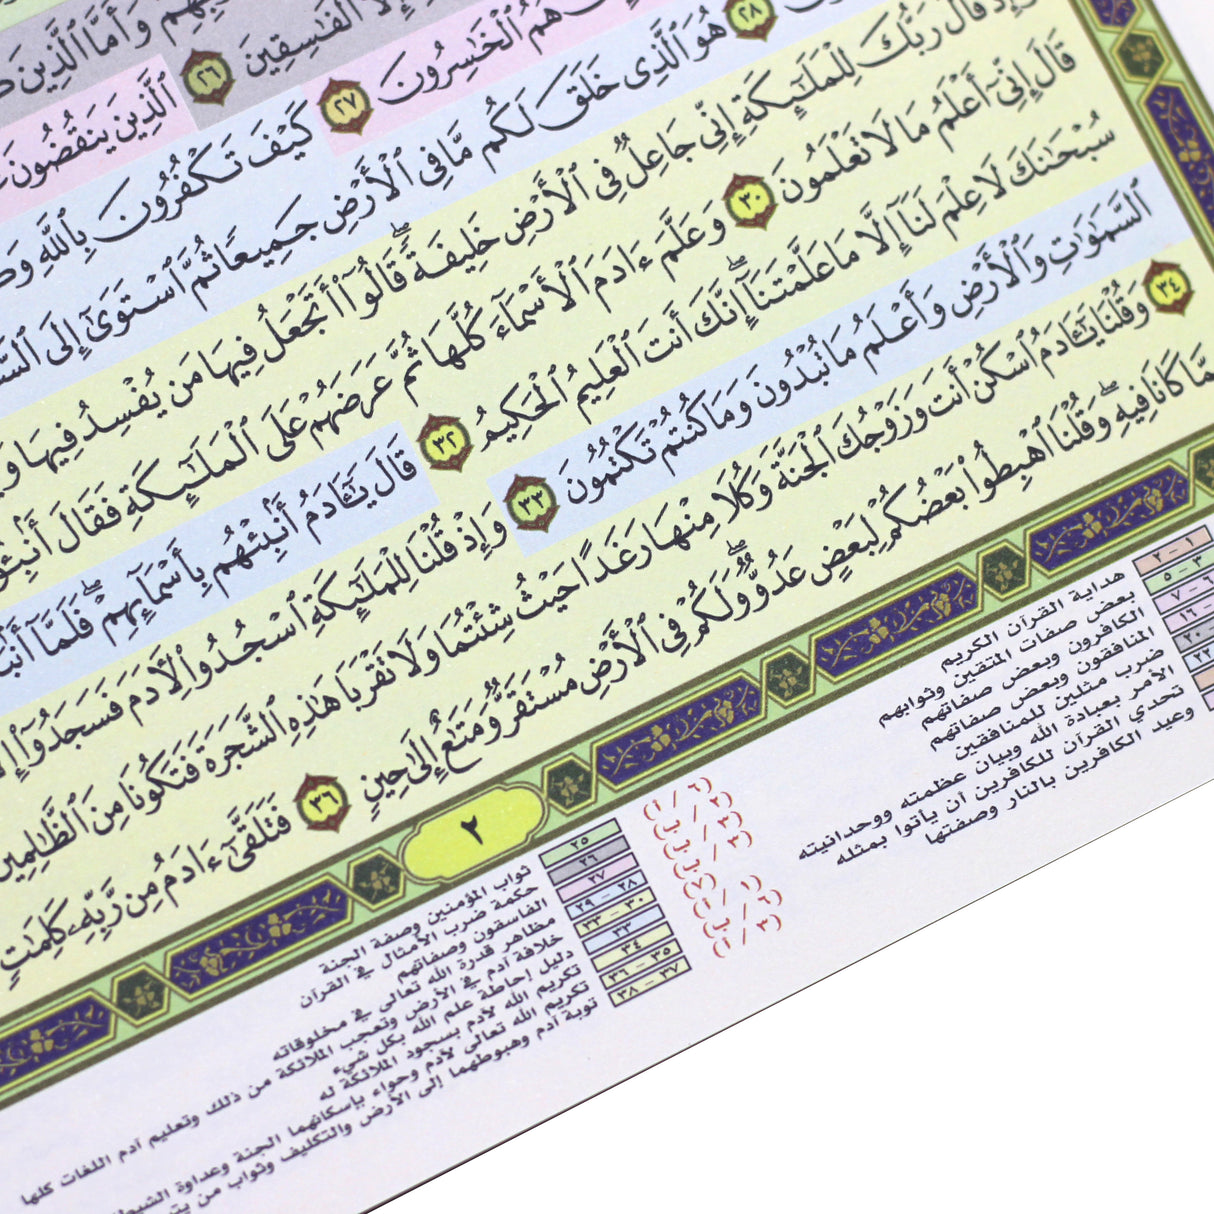 بِهِمْ وَأَمَّا ٱلَّذِينَ
إِلَّا ٱلْفَٰسِقِينَ ٢٦ ٱلَّذِينَ يَنقُضُونَ
هُمُ ٱلْخَٰسِرُونَ ٢٧ كَيْفَ تَكْفُرُونَ بِٱللَّهِ
٢٨ هُوَ ٱلَّذِى خَلَقَ لَكُم مَّا فِى ٱلْأَرْضِ جَمِيعًا ثُمَّ ٱسْتَوَىٰٓ إِلَى
وَإِذْ قَالَ رَبُّكَ لِلْمَلَٰٓئِكَةِ إِنِّى جَاعِلٌ فِى ٱلْأَرْضِ خَلِيفَةً ۖ قَالُوٓا۟ أَتَجْعَلُ فِيهَا مَن يُفْسِدُ فِيهَا
قَالَ إِنِّىٓ أَعْلَمُ مَا لَا تَعْلَمُونَ ٣٠ وَعَلَّمَ ءَادَمَ ٱلْأَسْمَآءَ كُلَّهَا ثُمَّ عَرَضَهُمْ عَلَى ٱلْمَلَٰٓئِكَةِ فَقَالَ
سُبْحَٰنَكَ لَا عِلْمَ لَنَآ إِلَّا مَا عَلَّمْتَنَآ ۖ إِنَّكَ أَنتَ ٱلْعَلِيمُ ٱلْحَكِيمُ ٣٢ قَالَ يَٰٓـَٔادَمُ أَنۢبِئْهُم بِأَسْمَآئِهِمْ ۖ فَلَمَّآ
ٱلسَّمَٰوَٰتِ وَٱلْأَرْضِ وَأَعْلَمُ مَا تُبْدُونَ وَمَا كُنتُمْ تَكْتُمُونَ ٣٣ وَإِذْ قُلْنَا لِلْمَلَٰٓئِكَةِ ٱسْجُدُوا۟ لِءَادَمَ فَسَجَدُوٓا۟
٣٤ وَقُلْنَا يَٰٓـَٔادَمُ ٱسْكُنْ أَنتَ وَزَوْجُكَ ٱلْجَنَّةَ وَكُلَا مِنْهَا رَغَدًا حَيْثُ شِئْتُمَا وَلَا تَقْرَبَا هَٰذِهِ ٱلشَّجَرَةَ فَتَكُونَا مِنَ ٱلظَّٰلِمِينَ
مِمَّا كَانَا فِيهِ ۖ وَقُلْنَا ٱهْبِطُوا۟ بَعْضُكُمْ لِبَعْضٍ عَدُوٌّ ۖ وَلَكُمْ فِى ٱلْأَرْضِ مُسْتَقَرٌّ وَمَتَٰعٌ إِلَىٰ حِينٍ ٣٦ فَتَلَقَّىٰٓ ءَادَمُ مِن رَّبِّهِۦ كَلِمَٰتٍ
٢
١ - ٢ هداية القرآن الكريم
٣ - ٥ بعض صفات المتقين وثوابهم
٦ - ٧ الكافرون وبعض صفاتهم
١٦ المنافقون وبعض صفاتهم
٢٠ ضرب مثلين للمنافقين
٢٢ الأمر بعبادة الله وبيان عظمته ووحدانيته
تحدي القرآن للكافرين أن يأتوا بمثله
وعيد الكافرين بالنار وصفتها
٢٥ ثواب المؤمنين وصفة الجنة
٢٦ حكمة ضرب الأمثال في القرآن
٢٧ الفاسقون وصفاتهم
٢٨ - ٢٩ مظاهر قدرة الله تعالى في مخلوقاته
٣٠ - ٣٣ خلافة آدم في الأرض وتعجب الملائكة من ذلك وتعليم آدم اللغات كلها
٣٣ دليل إحاطة علم الله بكل شيء
٣٤ تكريم الله لآدم بسجود الملائكة له
٣٥ - ٣٦ تكريم الله تعالى لآدم وحواء بإسكانهما الجنة وعداوة
٣٧ - ٣٨ توبة آدم وهبوطهما إلى الأرض والتكليف وثواب من